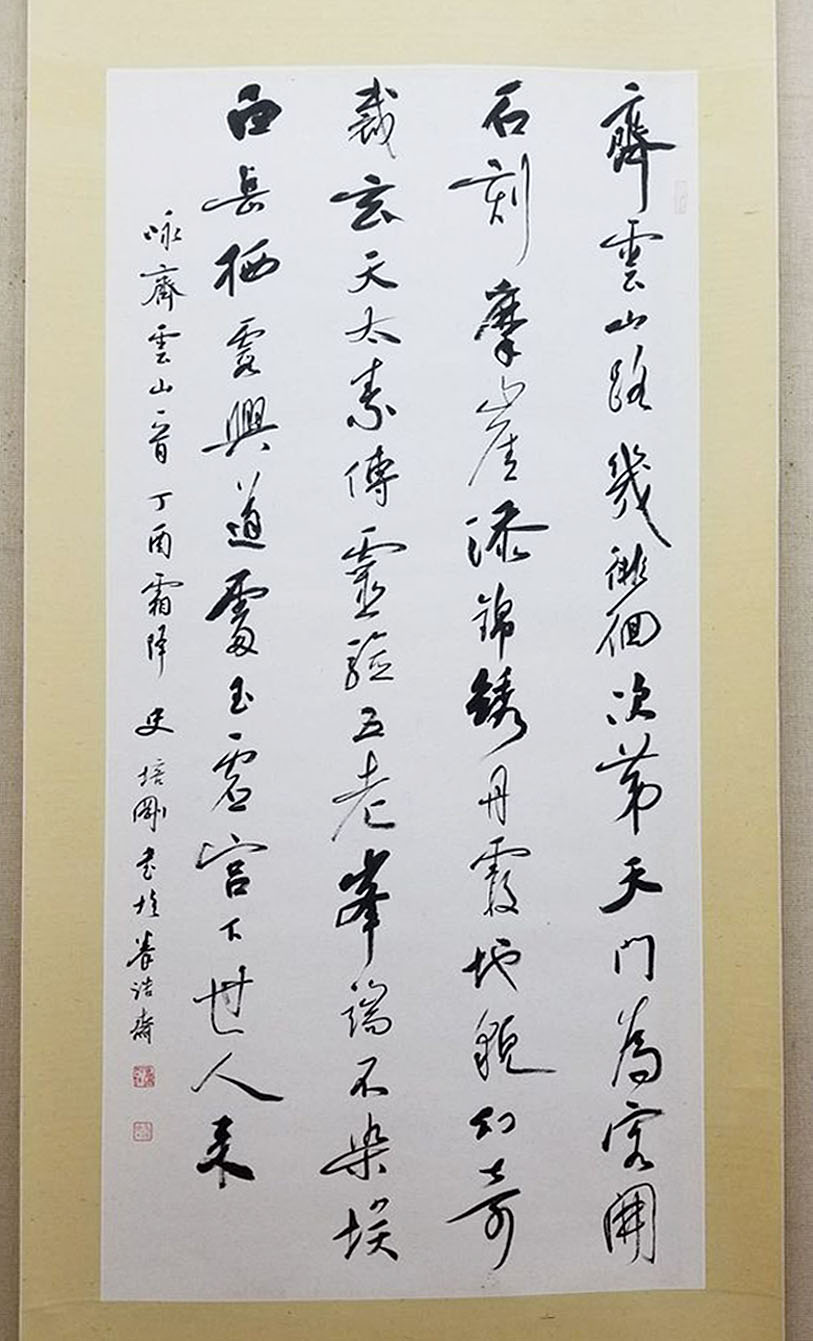 齊雲山路幾徘徊次第天門為客開
石刻摩崖添錦繡丹霞地貌幻奇
裁玄天太素傳靈驗五老峯端不染埃
西岳栖霞興道處玉虛宮下世人来
咏齊雲山一首 丁酉霜降 史培剛書於養浩齋